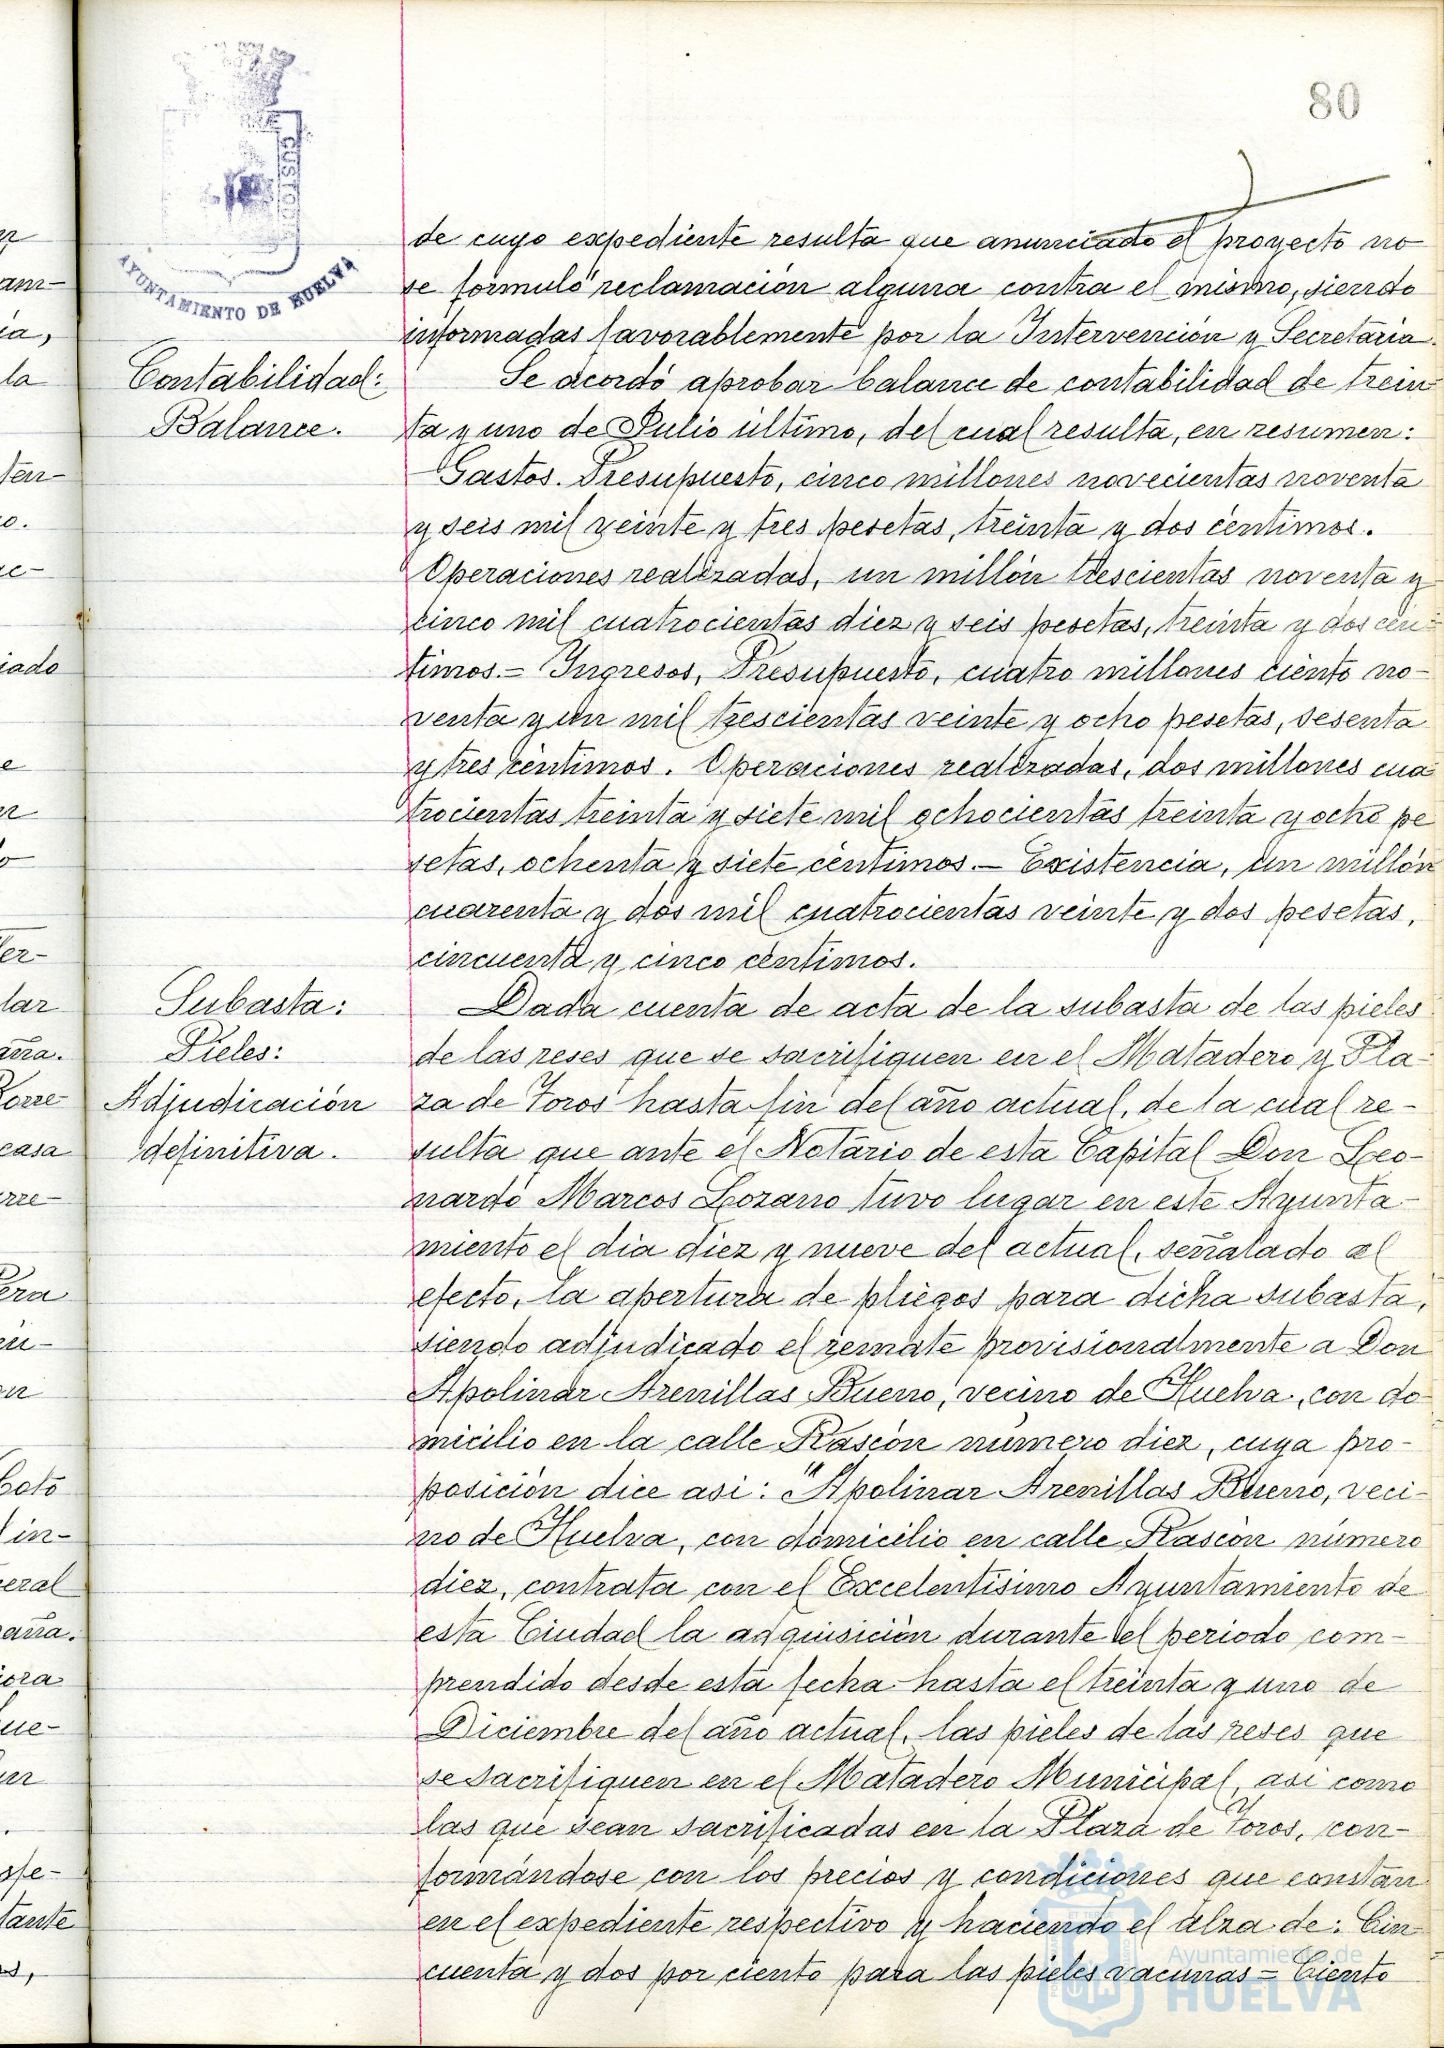 80
CUSTOD
AYUNTAMIENTO DE HUELVA
de cuyo expediente resulta que anunciado el proyecto no
se formuló reclamación alguna contra el mismo, siendo
informadas favorablemente por la Intervención y Secretaria.
Contabilidad:
Balance.
Se acordó aprobar balance de contabilidad de trein-
ta y uno de Julio último, del cual resulta, en resumen:
Gastos. Presupuesto, cinco millones novecientas noventa
y seis mil veinte y tres pesetas, treinta y dos céntimos.
Operaciones realizadas, un millón trescientas noventa y
cinco mil cuatrocientas diez y seis pesetas, treinta y dos cén-
timos.= Ingresos, Presupuesto, cuatro millones ciento no-
venta y un mil trescientas veinte y ocho pesetas, sesenta
y tres céntimos. Operaciones realizadas, dos millones cua
trocientas treinta y siete mil ochocientas treinta y ocho pe
setas, ochenta y siete céntimos.- Existencia, un millón
cuarenta y dos mil cuatrocientas veinte y dos pesetas,
cincuenta y cinco céntimos.
Subasta:
Pieles:
Adjudicación
definitiva.
Dada cuenta de acta de la subasta de las pieles
de las reses que se sacrifiquen en el Matadero y Pla-
za de Toros hasta fin del año actual, de la cual re-
sulta que ante el Notario de esta Capital Don Leo-
nardo Marcos Lozano tuvo lugar en este Ayunta-
miento el dia diez y nueve del actual, señalado al
efecto, la apertura de pliegos para dicha subasta,
siendo adjudicado el remate provisionalmente a Don
Apolinar Arenillas Bueno, vecino de Huelva, con do-
micilio en la calle Rascón número diez, cuya pro-
posición dice asi: "Apolinar Arenillas Bueno, veci-
no de Huelva, con domicilio en calle Rascón número
diez, contrata con el Excelentísimo Ayuntamiento de
esta Ciudad la adquisición durante el periodo com-
prendido desde esta fecha hasta el treinta y uno de
Diciembre del año actual, las pieles de las reses que
se sacrifiquen en el Matadero Municipal, asi como
las que sean sacrificadas en la Plaza de Toros, con-
formándose con los precios y condiciones que constan
en el expediente respectivo y haciendo el alza de: Cin-
cuenta y dos por ciento para las pieles vacunas = Ciento
Ayuntamiento de
HUELVA